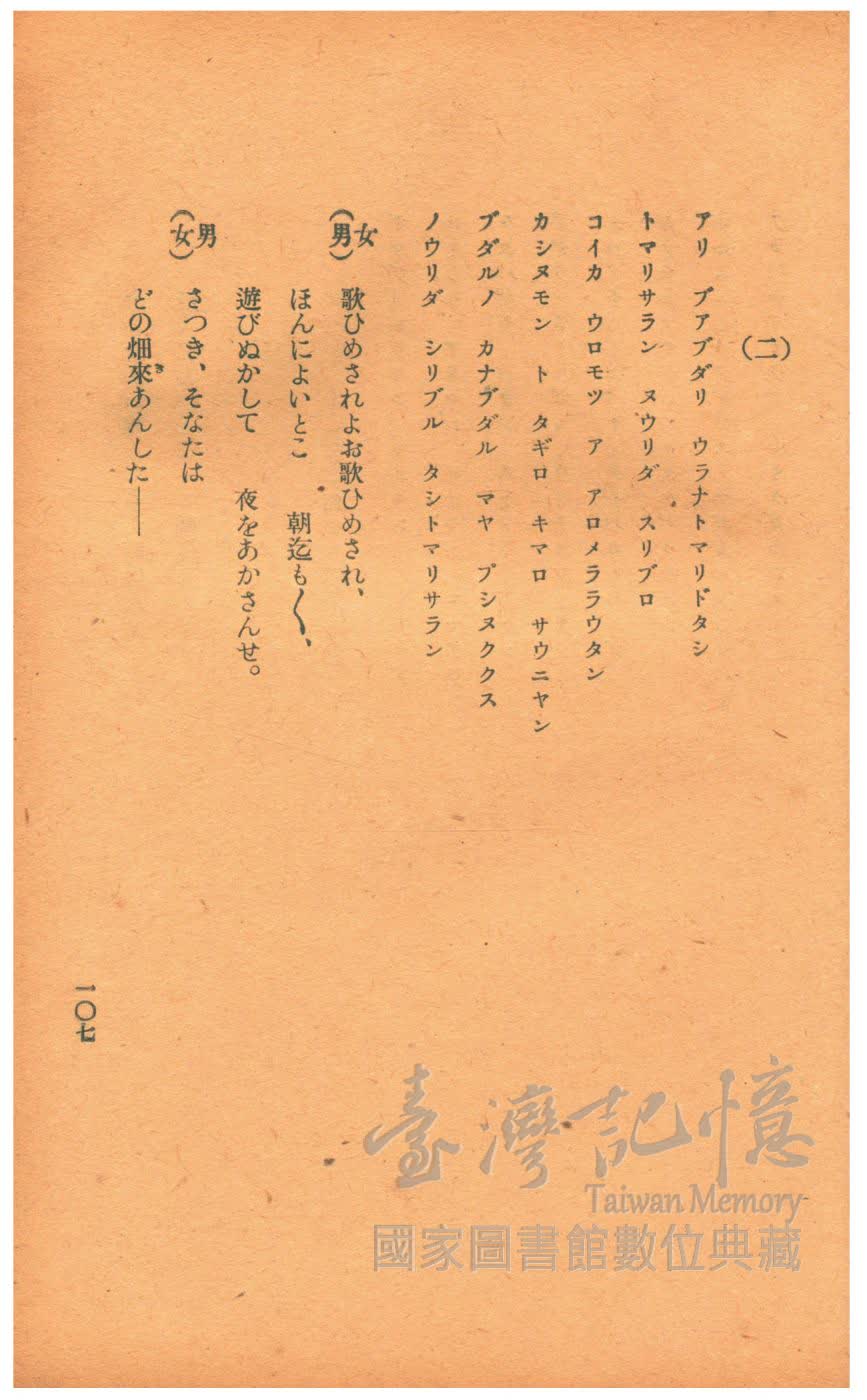 （二）
アリ　ブアブダリ　ウラナトマリドタシ
トマリサラン　ヌウリダ　スリブロ
コイカ　ウロモツ　ア　アロメララウタン
カシヌモン　ト　タギロ　キマロ　サウニヤン
ブダルノ　カナブダル　マヤ　プシヌククス
ノウリダ　シリブル　タシトマリサラン
女（男）　歌ひめされよお歌ひめされ、
ほんによいとこ　朝迄も〱、
遊びぬかして　夜をあかさんせ。
男（女）　さつき、そなたは
どの畑來きあんした――
一〇七
臺灣記憶
Taiwan Memory
國家圖書館數位典藏